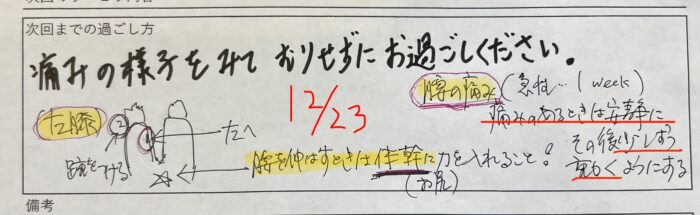 次回までの過ごし方
痛みの様子をみて むりせずに お過ごしください。
12/23
腰の痛み(急性… 1 week)
痛みのあるときは安静に
その後少しずつ
動くようにする
左膝
左へ
腰を伸ばすときは体幹に力を入れること!
(お尻)
備考